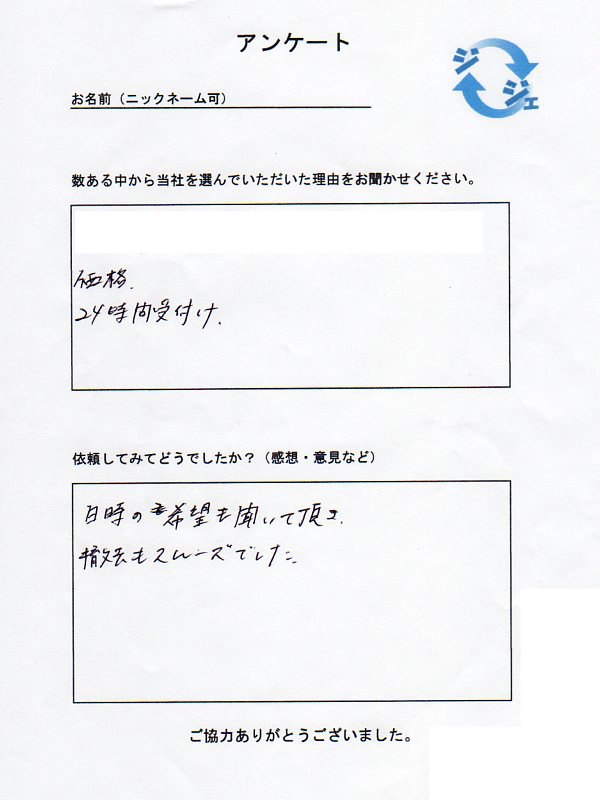 アンケート
ジジェ
お名前（ニックネーム可）
数ある中から当社を選んでいただいた理由をお聞かせください。
価格.
24時間受付け.
依頼してみてどうでしたか？（感想・意見など）
日時の希望も聞いて頂き.
撤去もスムーズでした.
ご協力ありがとうございました。